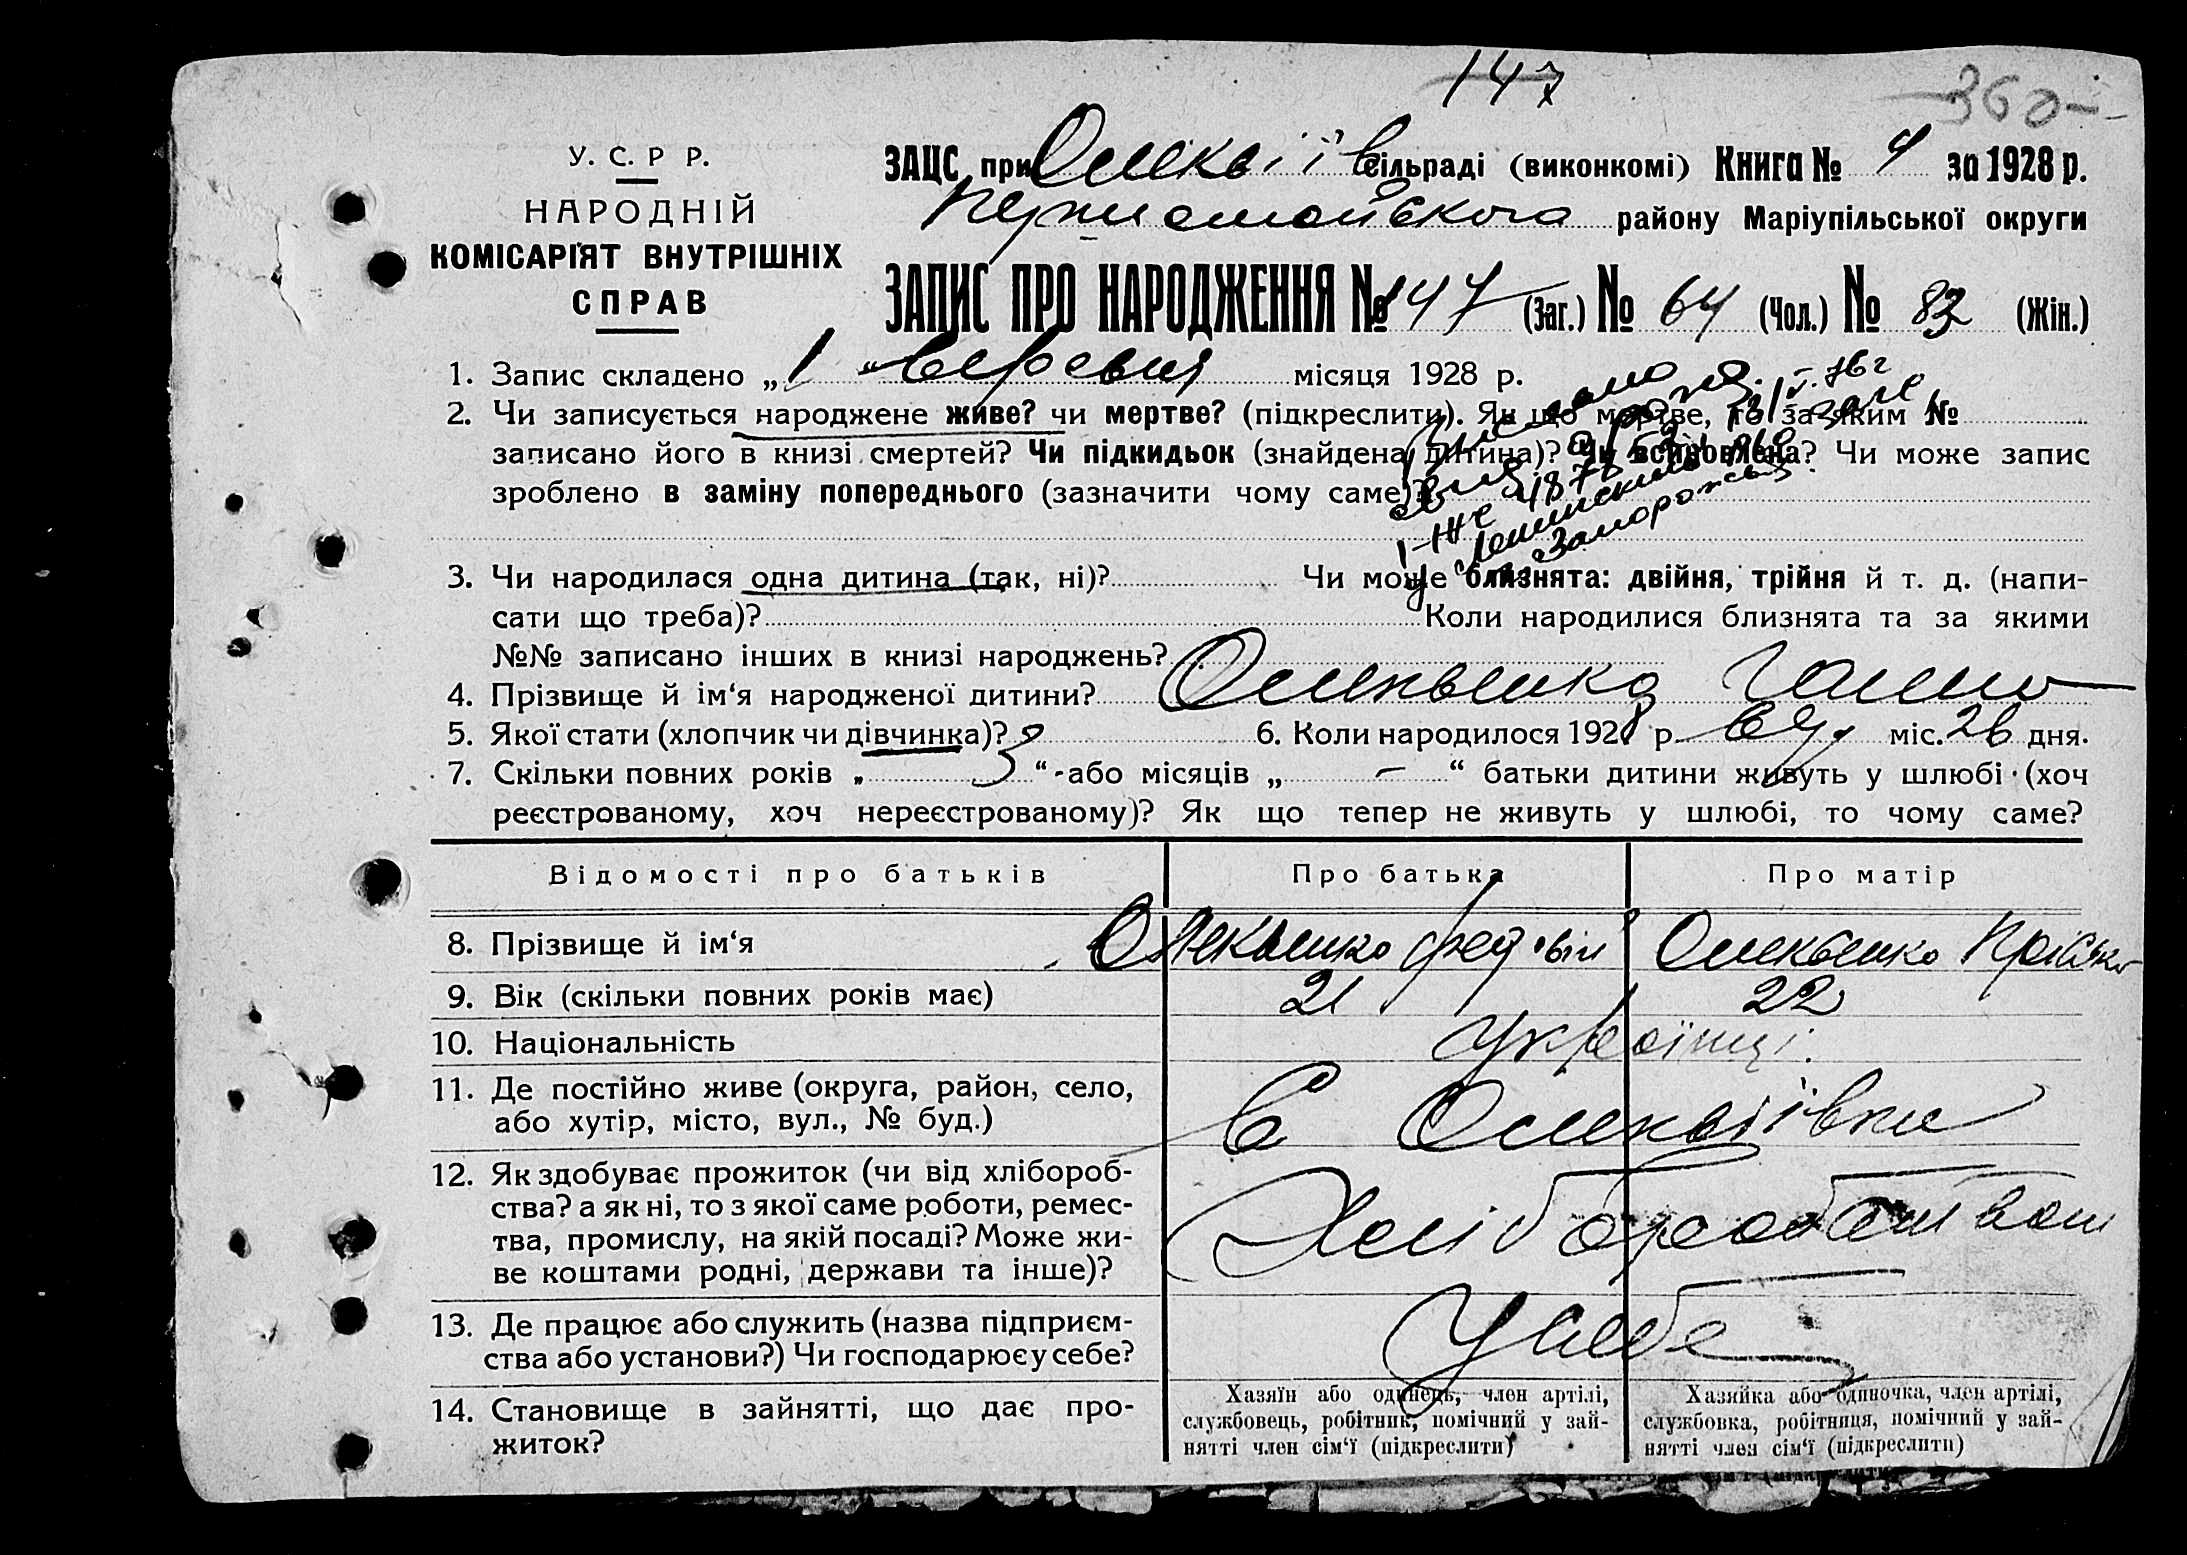 147
360
У. С. Р Р.
НАРОДНІЙ
КОМІСАРІЯТ ВНУТРІШНІХ
СПРАВ
ЗАЦС при Олексіїв сільраді (виконкомі) Книга № за 1928 р.
району Маріупільської округи
ЗАПИС ПРО НАРОДЖЕННЯ № 147 (Заг.) № 64 (Чол.) № 83 (Жін.)
1. Запис складено „ 1 “ вересня місяця 1928 р.
2. Чи записується народжене живе? чи мертве? (підкреслити). Як що мертве, то за яким №
записано його в книзі смертей? Чи підкидьок (знайдена дитина)? Чи встановлена? Чи може запис
зроблено в заміну попереднього (зазначити чому саме)?
3. Чи народилася одна дитина (так, ні)? Чи може близнята: двійня, трійня й т. д. (напи-
сати що треба)? Коли народилися близнята та за якими
№№ записано інших в книзі народжень?
4. Прізвище й ім‘я народженої дитини?
5. Якої стати (хлопчик чи дівчинка)? 6. Коли народилося 1928 р. міс. 26 дня.
7. Скільки повних років „ 3 “ або місяців „ – “ батьки дитини живуть у шлюбі (хоч
реєстрованому, хоч нереєстрованому)? Як що тепер не живуть у шлюбі, то чому саме?
Відомості про батьків Про батька Про матір
8. Прізвище й ім‘я
9. Вік (скільки повних років має) 21 22
10. Національність українці.
11. Де постійно живе (округа, район, село,
або хутір, місто, вул., № буд.)
с Олексіївки
12. Як здобуває прожиток (чи від хлібороб-
ства? а як ні, то з якої саме роботи, ремес-
тва, промислу, на якій посаді? Може жи-
ве коштами родні, держави та інше)?
Хліборобством
13. Де працює або служить (назва підприєм-
ства або установи?) Чи господарює у себе?
У себе
14. Становище в зайнятті, що дає про-
житок?
Хазяїн або одинець, член артілі,
службовець, робітник, помічний у зай-
нятті член сім‘ї (підкреслити)
Хазяйка або одиночка, член артілі,
службовка, робітниця, помічний у зай-
нятті член сім‘ї (підкреслити)